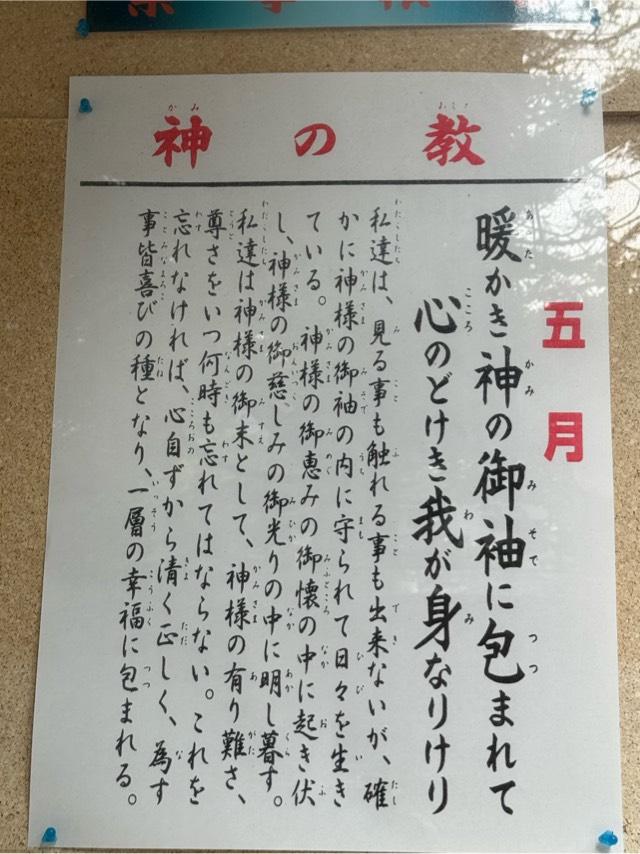 神の教
五月
暖かき神の御袖に包まれて
心のどけき我が身なりけり
私達は、見る事も触れる事も出来ないが、確
かに神様の御袖の内に守られて日々を生き
ている。神様の御恵みの御懐の中に起き伏
し、神様の御慈しみの御光りの中に明し暮す。
私達は神様の御末として、神様の有り難さ、
尊さをいつ何時も忘れてはならない。これを
忘れなければ、心自ずから清く正しく、為す
事皆喜びの種となり、一層の幸福に包まれる。